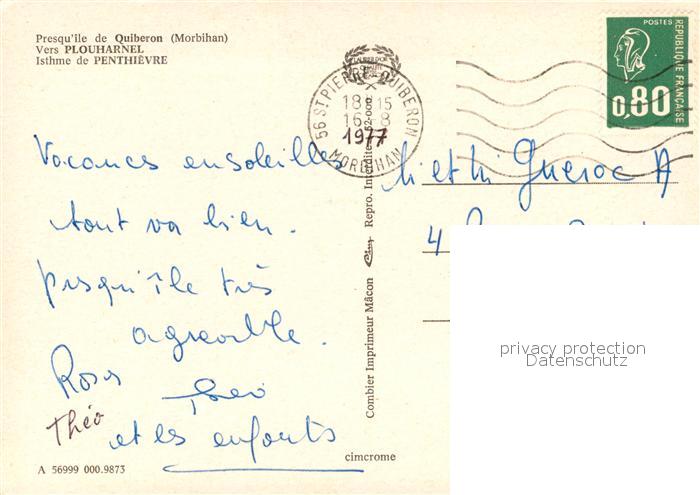 Presqu'île de Quiberon (Morbihan)
Vers PLOUHARNEL
Isthme de PENTHIÈVRE
POSTES
RÉPUBLIQUE FRANÇAISE
0,80
56 ST PIERRE-QUIBERON
18H15
16-8
1977
MORBIHAN
Vacances ensoleillées
tout va bien.
presqu'île très
agréable.
Roses Theo
Théo
et les enfants
M et Mme
4
Combier Imprimeur Mâcon Cim Repro. Interdite
privacy protection
Datenschutz
cimcrome
A 56999 000.9873